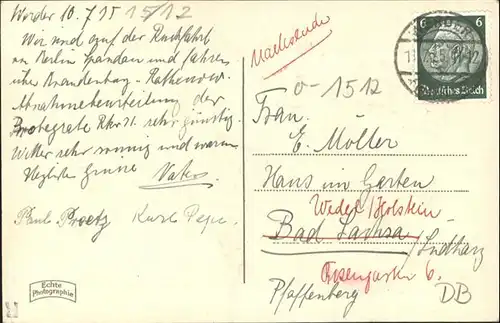 Werder 10.7.35 15/12
Wir sind auf der Rückfahrt
an Berlin Spandau und fahren
über Brandenburg - Rathenow.
Abnahmebeurteilung der
sehr günstig.
Wetter sehr sonnig und warm
Herzliche Grüsse
Vater
Paul Kurt Pepe.
Nachsende
0-1512
6 6
Deutsches Reich
Frau
E. Möller
Haus im Garten
Wedel/Holstein
Bad Sachsa
/Südharz
Rosengarten 6.
Pfaffenberg DB
Echte
Photographie